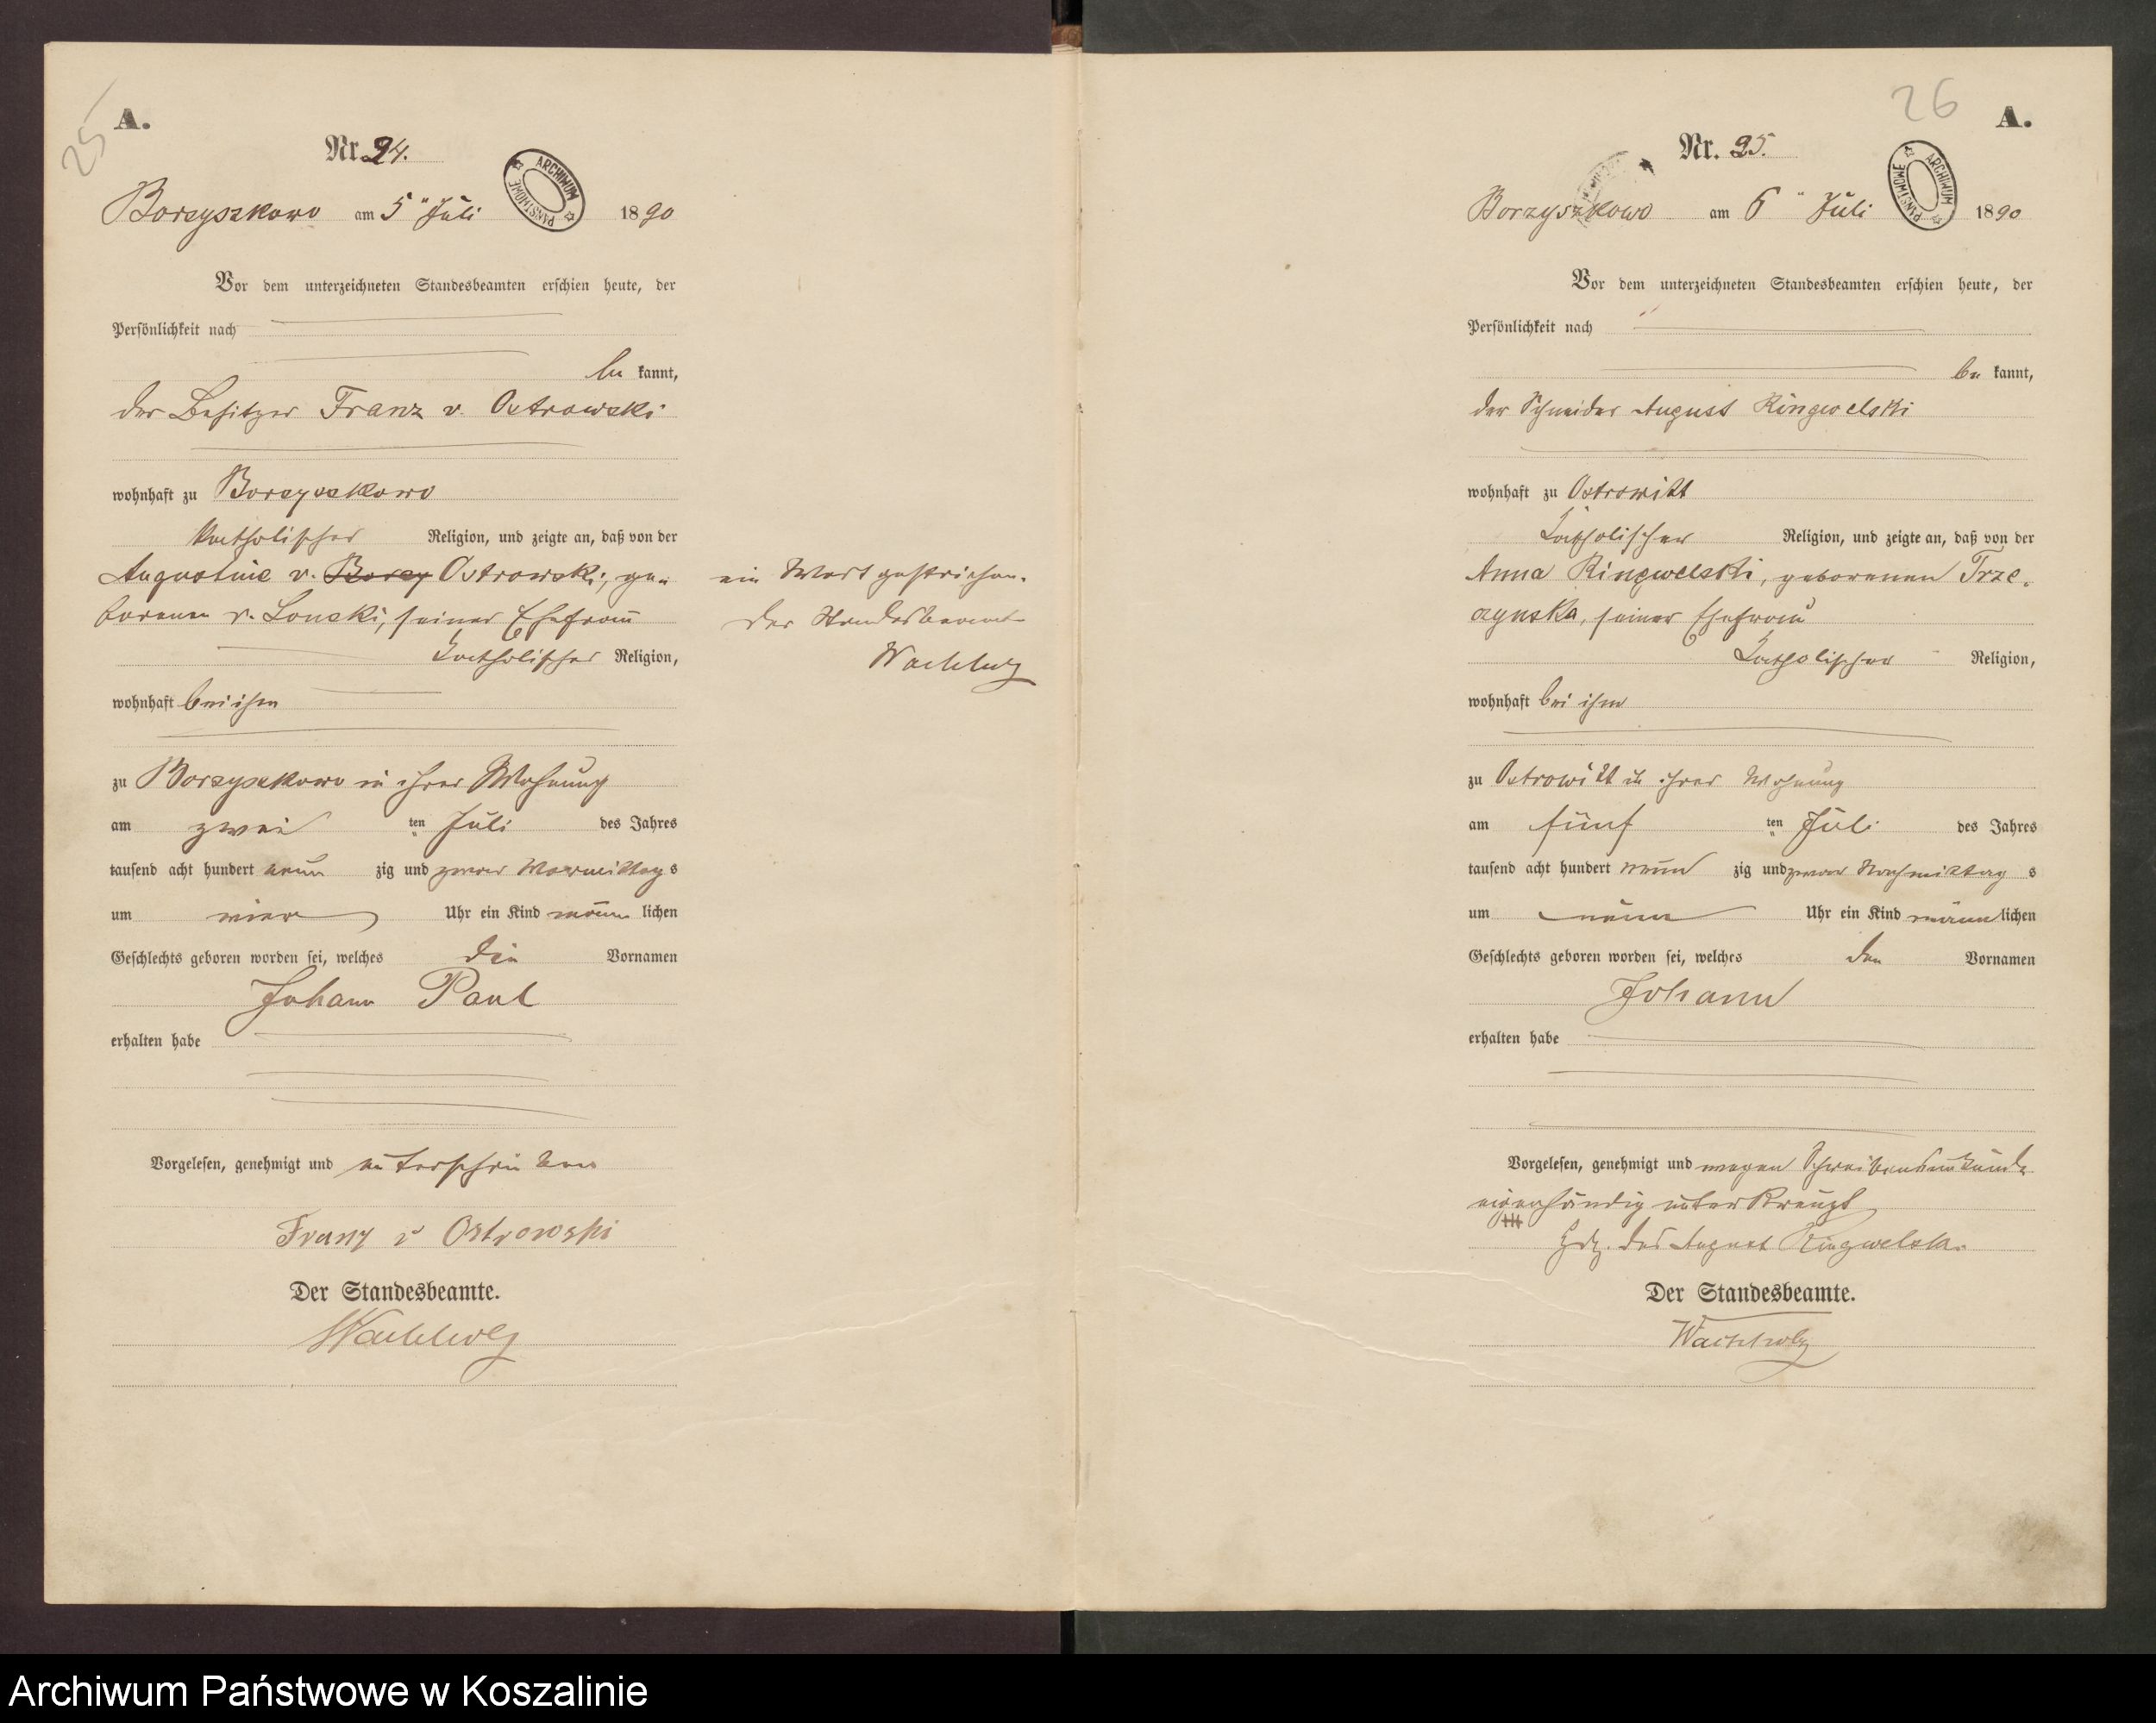 25
A.
Nr. 24.
ARCHIWUM PAŃSTWOWE
Borzyszkowo am 5ten Juli 1890
Vor dem unterzeichneten Standesbeamten erschien heute, der
Persönlichkeit nach
be kannt,
der Besitzer Franz v. Ostrowski
wohnhaft zu Borzyszkowo
katholischer Religion, und zeigte an, daß von der
Augustine v. Borzy Ostrowski, ge-
borenen v. Lonski, seiner Ehefrau
katholischer Religion,
wohnhaft bei ihm
zu Borzyszkowo in ihrer Wohnung
am zwei ten Juli des Jahres
tausend acht hundert neun zig und zwar Vormittag s
um vier Uhr ein Kind männ lichen
Geschlechts geboren worden sei, welches die Vornamen
Johann Paul
erhalten habe
Vorgelesen, genehmigt und unterschrieben
Franz v Ostrowski
Der Standesbeamte.
ein Wort gestrichen.
Der Standesbeamte
26
A.
Nr. 25.
ARCHIWUM PAŃSTWOWE
Borzyszkowo am 6 " Juli 1890
Vor dem unterzeichneten Standesbeamten erschien heute, der
Persönlichkeit nach
be kannt,
der Schneider August Ringwelski
wohnhaft zu Ostrowitt
katholischer Religion, und zeigte an, daß von der
Anna Ringwelski, geborenen Trze-
zynska, seiner Ehefrau
katholischer Religion,
wohnhaft bei ihm
zu Ostrowitt in ihrer Wohnung
am fünf ten Juli des Jahres
tausend acht hundert neun zig und zwar Nachmittag s
um neun Uhr ein Kind männ lichen
Geschlechts geboren worden sei, welches den Vornamen
Johann
erhalten habe
Vorgelesen, genehmigt und wegen Schreibensunkunde
eigenhändig unterkreuzt
+++
Hdz. des August Ringwelski
Der Standesbeamte.
Archiwum Państwowe w Koszalinie